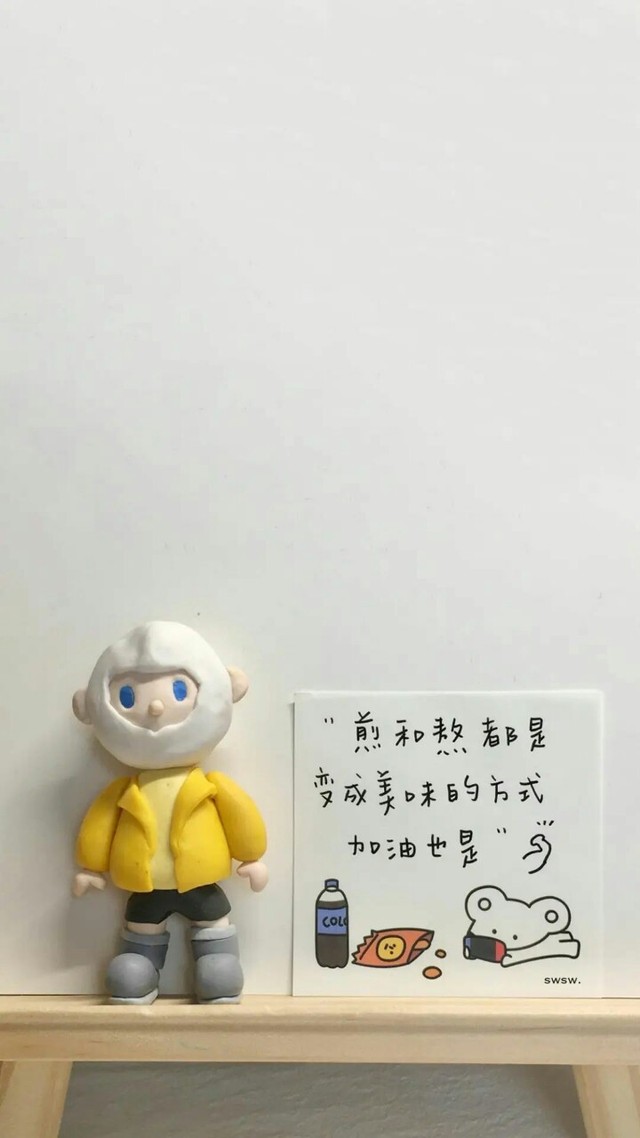 "煎和熬都是
变成美味的方式
加油也是"
COLA
swsw.